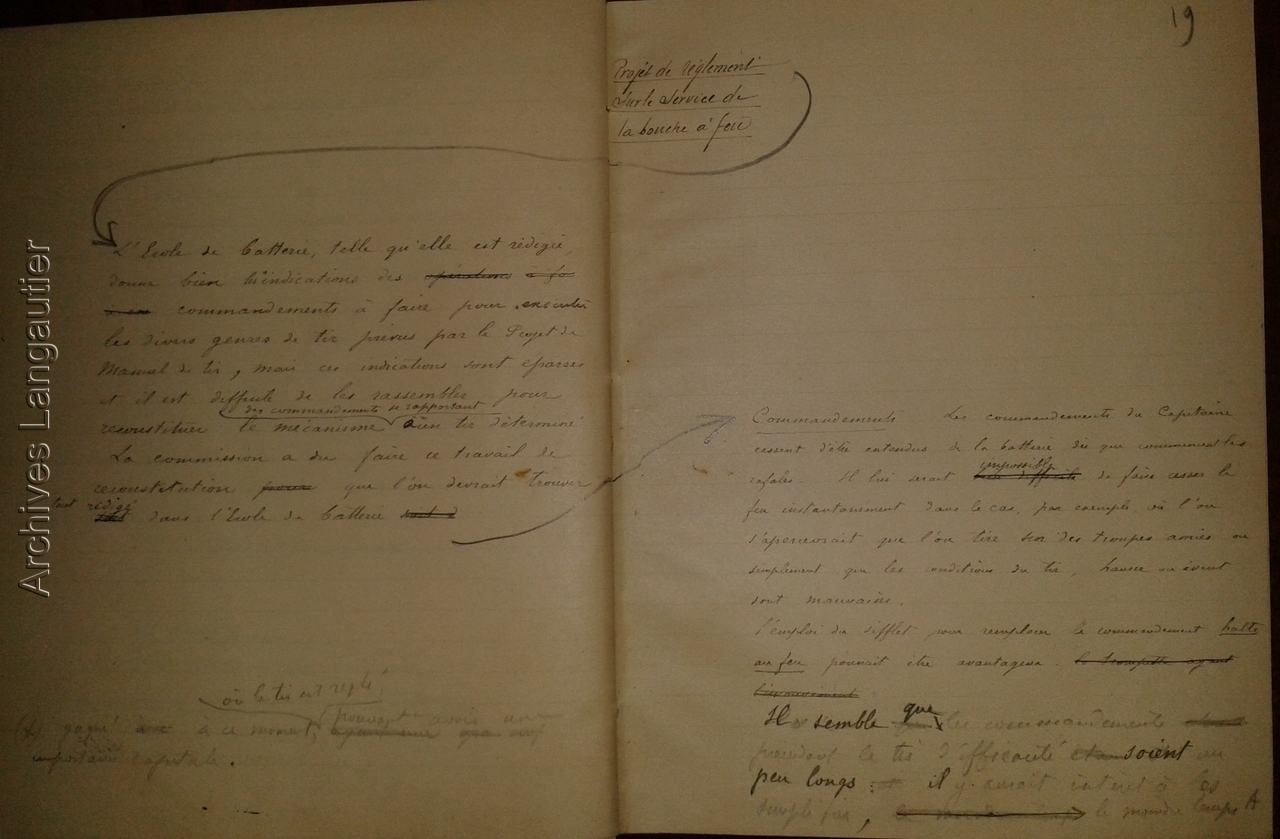 Archives Langautier
L'Ecole de batterie, telle qu'elle est rédigée,
donne bien les indications des opérations à fe
commandements à faire pour exécuter
les divers genres de tir prévus par le Projet de
Manuel de tir, mais ces indications sont éparses
et il est difficile de les rassembler pour
des commandements se rapportant
reconstituer le mécanisme à un tir déterminé
La commission a du faire ce travail de
reconstitution pour que l'on devrait trouver
tout rédigé dans l'Ecole de batterie
où le tir est réglé
à ce moment, pouvant avoir une
importance capitale.
19
Projet de règlement
sur le service de
la bouche à feu
Commandements Les commandements du Capitaine
cessent d'être entendus de la batterie dès que commencent les
impossible
rafales. Il lui serait difficile de faire cesser le
feu instantanément dans le cas, par exemple, où l'on
s'apercevrait que l'on tire sur des troupes amies ou
simplement que les conditions du tir, hausse ou évent
sont mauvaises.
l'emploi du sifflet pour remplacer le commandement halte
au feu pourrait être avantageux. la trompette ayant
l'inconvénient
Il semble que les commandements
pendant le tir d'efficacité soient un
peu longs : il y aurait intérêt à les
simplifier, le moindre temps A